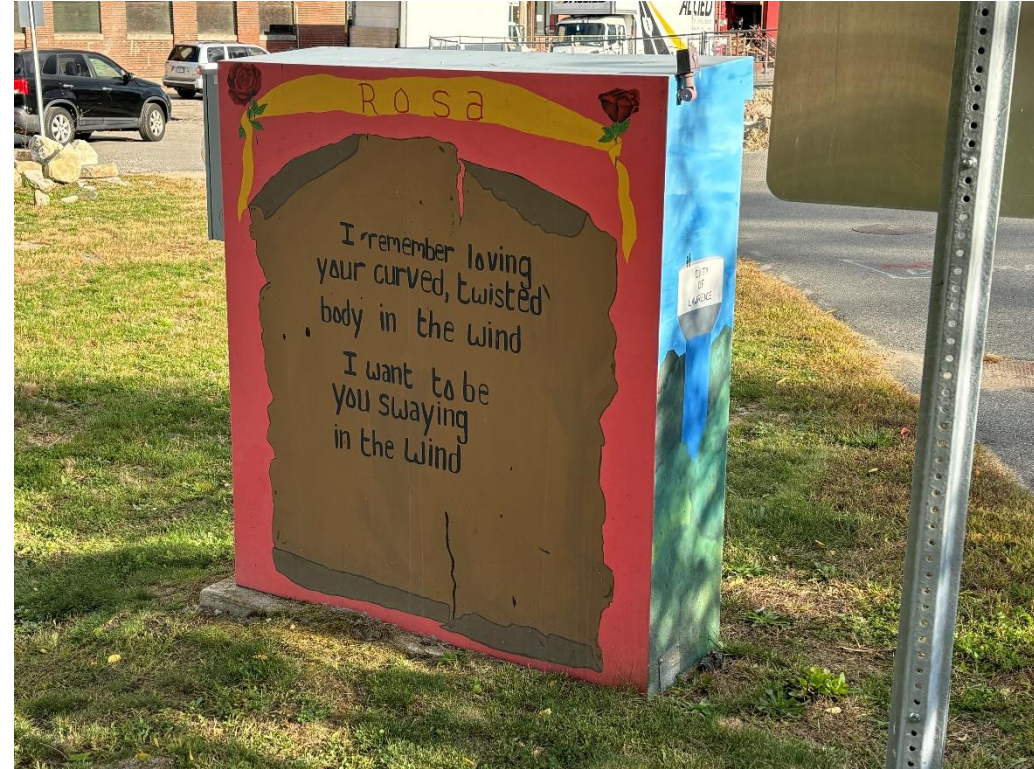 ALLIED
Rosa
I remember loving
your curved, twisted
body in the wind
I want to be
you swaying
in the wind
CITY
OF
LAWRENCE